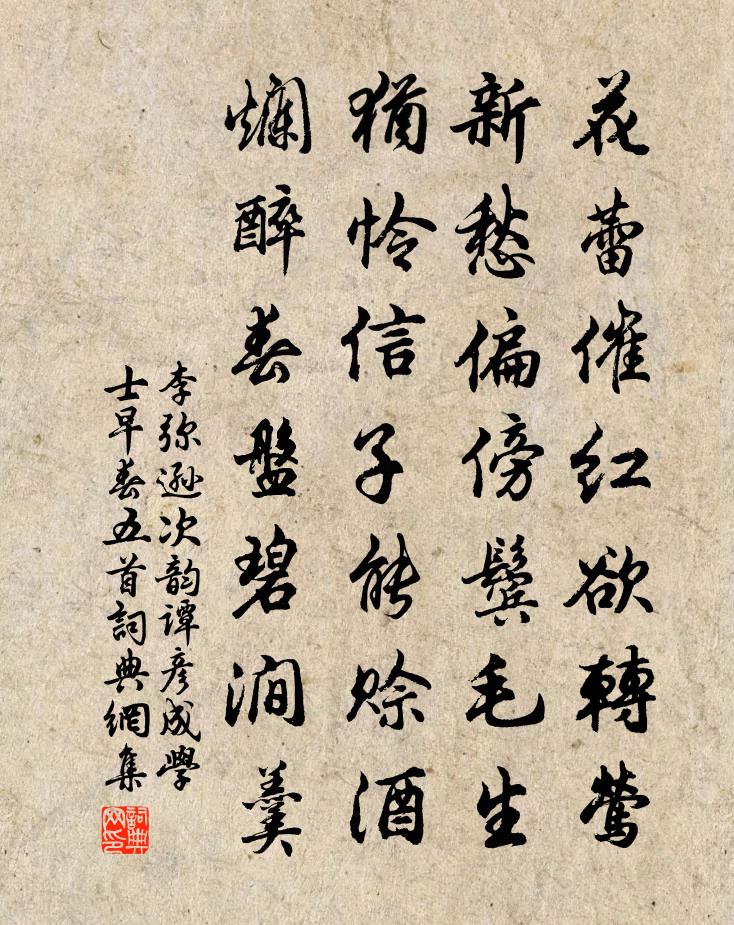 花蕾催红欲轉鶯
新愁偏傍鬓毛生
猶怜信子能赊酒
爛醉春盤碧澗羹
李弥逊次韵谭彦成學
士早春五首詞典網集
詞典
网印